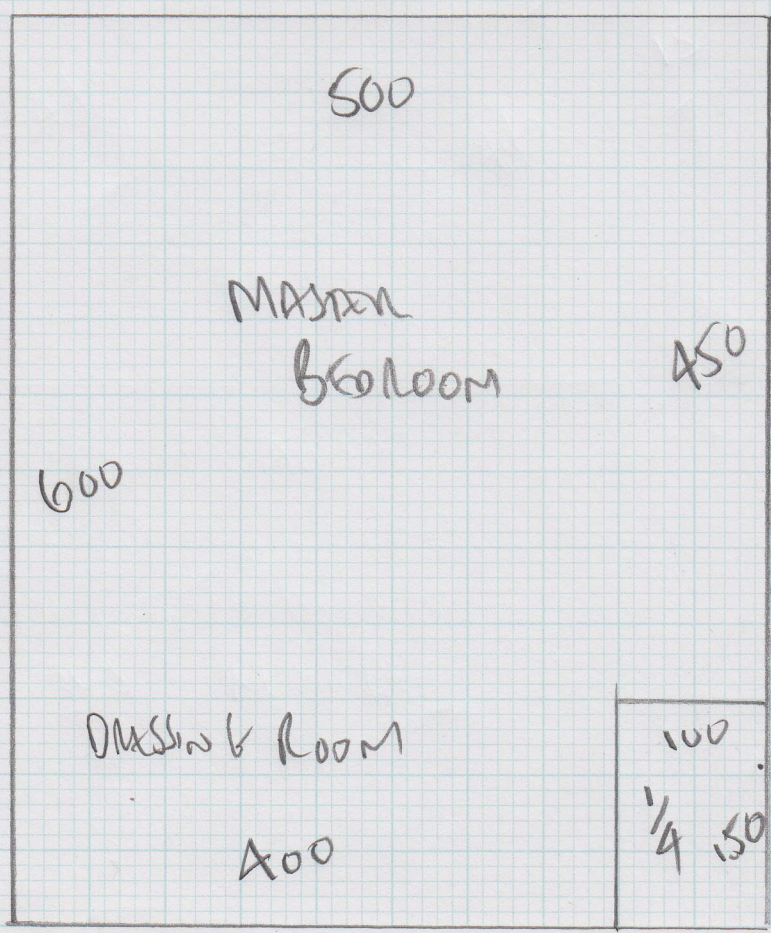 500
MASTER
BEDROOM
450
600
DRESSING ROOM
100
1/4 150
400